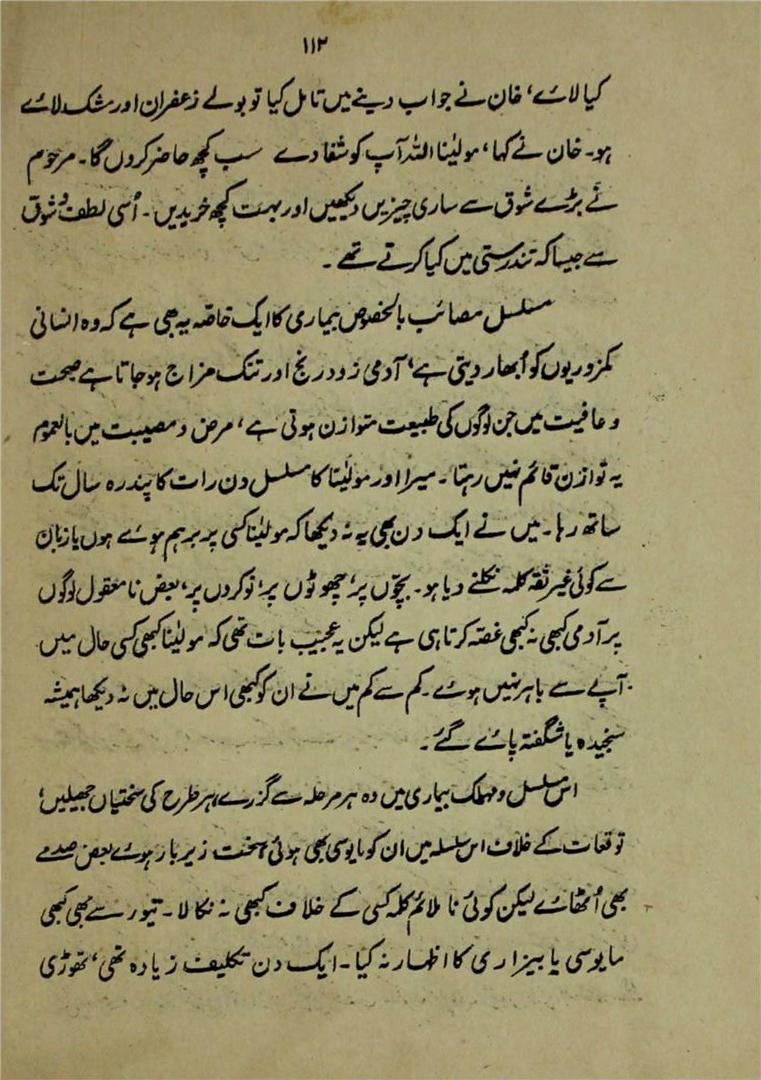 ۱۱۲
کیا لائے، خان نے جواب دینے میں تامل کیا تو بولے زعفران اور مشک لائے
ہو۔ خان نے کہا، مولیٰنا اللہ آپ کو شفا دے سب کچھ حاضر کروں گا۔ مرحوم
نے بڑے شوق سے ساری چیزیں دیکھیں اور بہت کچھ خریدیں۔ اُسی لطف و شوق
سے جیسا کہ تندرستی میں کیا کرتے تھے۔
مسلسل مصائب بالخصوص بیماری کا ایک خاصّہ یہ بھی ہے کہ وہ انسانی
کمزوریوں کو اُبھار دیتی ہے، آدمی زود رنج اور تنک مزاج ہو جاتا ہے صحت
و عافیت میں جن لوگوں کی طبیعت متوازن ہوتی ہے، مرض و مصیبت میں بالعموم
یہ توازن قائم نہیں رہتا۔ میرا اور مولیٰنا کا مسلسل دن رات کا پندرہ سال تک
ساتھ رہا۔ میں نے ایک دن بھی یہ نہ دیکھا کہ مولیٰنا کسی پر برہم ہوئے ہوں یا زبان
سے کوئی غیر ثقہ کلمہ نکلنے دیا ہو۔ بچّوں پر، چھوٹوں پر، نوکروں پر، بعض نامعقول لوگوں
پر آدمی کبھی نہ کبھی غصّہ کرتا ہی ہے لیکن یہ عجیب بات تھی کہ مولیٰنا کبھی کسی حال میں
آپے سے باہر نہیں ہوئے۔ کم سے کم میں نے ان کو کبھی اس حال میں نہ دیکھا ہمیشہ
سنجیدہ یا شگفتہ پائے گئے۔
اس مسلسل و مہلک بیماری میں وہ ہر مرحلہ سے گزرے، ہر طرح کی سختیاں جھیلیں،
توقعات کے خلاف اس سلسلہ میں ان کو مایوسی بھی ہوئی، سخت زیر بار ہوئے بعض صدمے
بھی اُٹھائے لیکن کوئی نا ملائم کلمہ کسی کے خلاف کبھی نہ نکالا۔ تیور سے بھی کبھی
مایوسی یا بیزاری کا اظہار نہ کیا۔ ایک دن تکلیف زیادہ تھی، تھوڑی